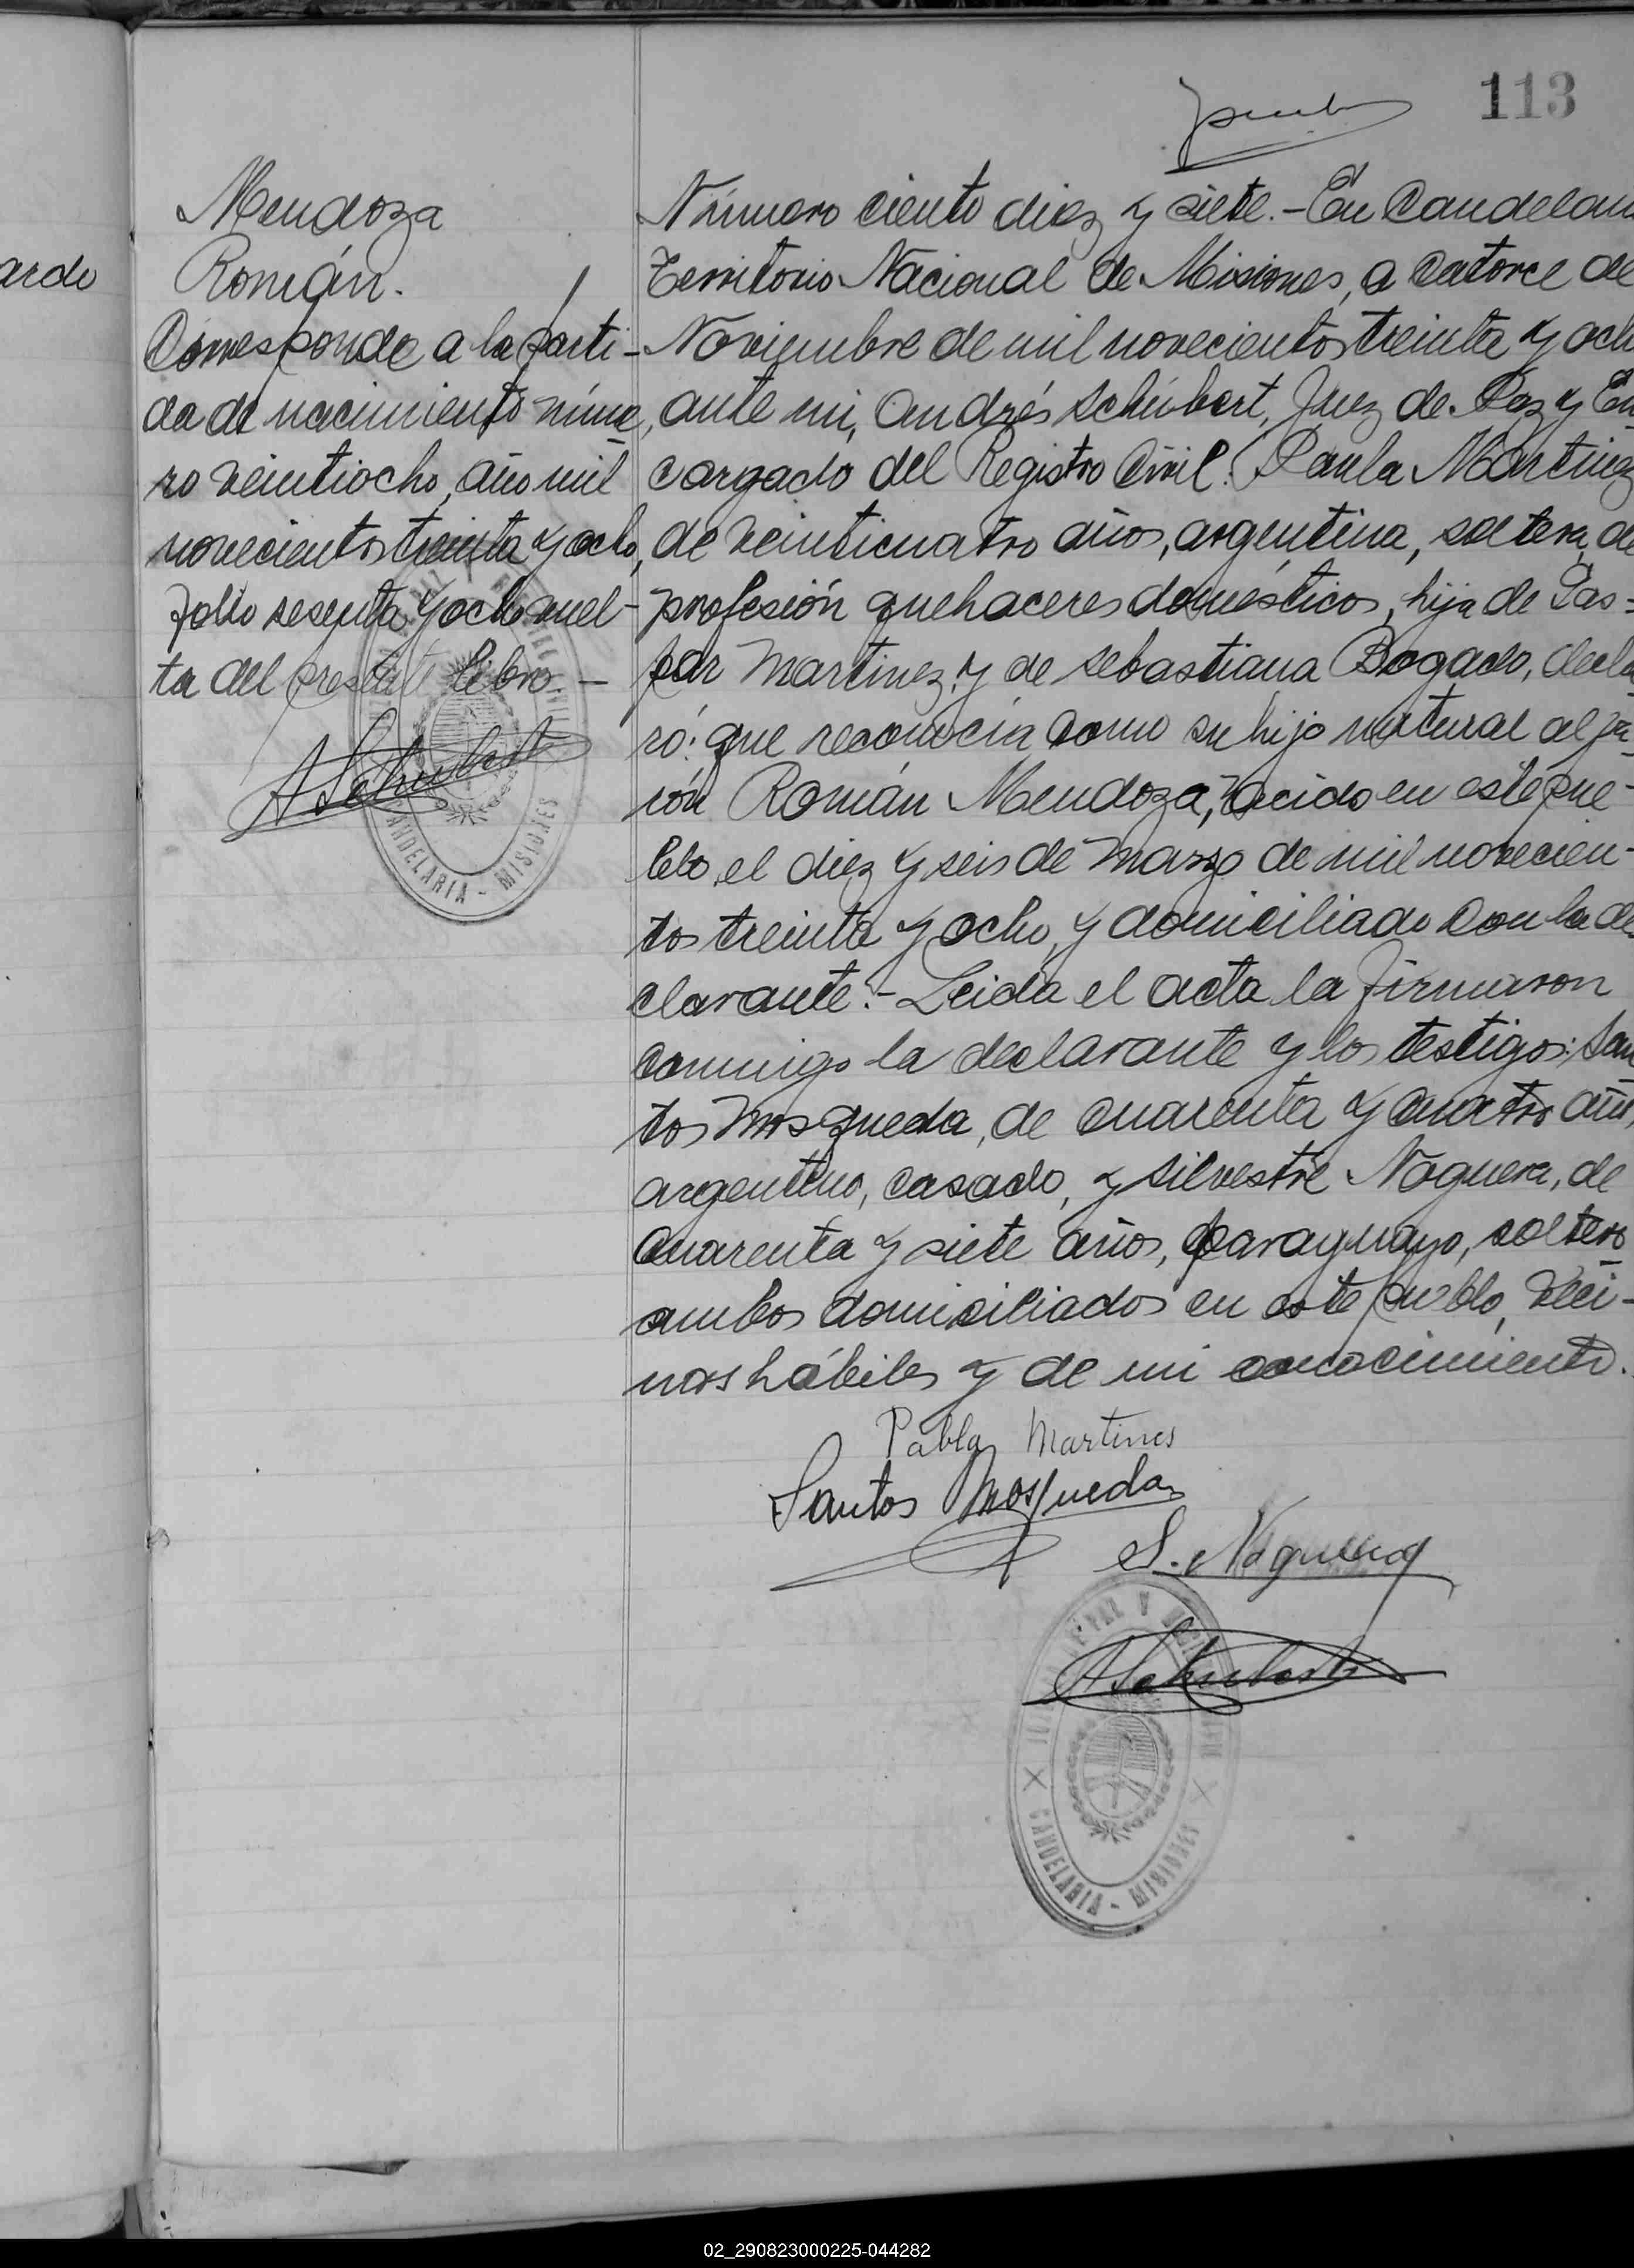 113
ardo
Mendoza
Román.
Corresponde a la parti-
da de nacimiento núme
ro veintiocho, año mil
novecientos treinta y ocho,
folio sesenta y ocho vuel-
ta del presente libro.-
ASchubert
CANDELARIA - MISIONES
Número ciento diez y siete.- En Candelaria
Territorio Nacional de Misiones, a catorce de
Noviembre de mil novecientos treinta y och
ante mi, Andrés Schubert, Juez de Paz y En
cargado del Registro Civil: Paula Martinez
de veinticuatro años, argentina, soltera, de
profesión quehaceres domésticos, hija de Gas=
par Martinez y de Sebastiana Bogado, decla
ró: que reconocia como su hijo natural al va-
rón Román Mendoza, nacido en este pue-
blo, el diez y seis de marzo de mil novecien-
tos treinta y ocho, y domiciliado con la de
clarante.- Leida el acta la firmaron
conmigo la declarante y los testigos: San
tos Mosqueda, de cuarenta y cuatro años,
argentino, casado, y Silvestre Noguera, de
cuarenta y siete años, paraguayo, soltero
ambos domiciliados en este pueblo, veci-
nos hábiles y de mi conocimiento.
Pabla Martines
Santos Mosqueda
S. Noguera
ASchubert
CANDELARIA - MISIONES
02_290823000225-044282